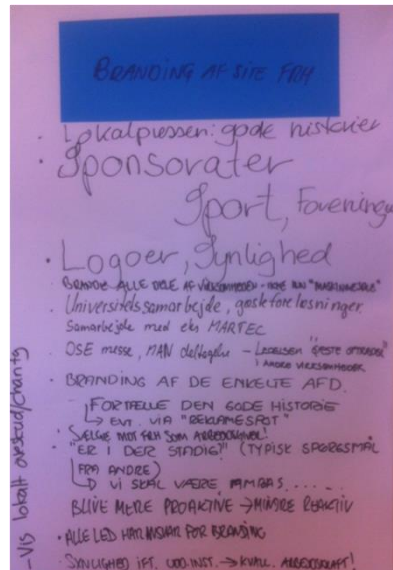 BRANDING AF SITE FRH
· Lokalpressen: gode historier
· Sponsorater
Sport, Forening
· Logoer, Synlighed
BRANDE ALLE DELE AF VIRKSOMHEDEN - IKKE KUN
· Universitetssamarbejde, gæsteforelæsninger
Samarbejde med eks MARTEC
· OSE messe, MAN deltagelse - LEDELSEN "GÆSTE
ANDRE VIRKSOMHEDER
· BRANDING AF DE ENKELTE AFD.
FORTÆLLE DEN GODE HISTORIE
↳ EVT. VIA "REKLAMESPOT"
· SÆLGE MDT FRH SOM
· "ER I DER STADIG?" (TYPISK SPØRGSMÅL
FRA ANDRE)
↳ VI SKAL VÆRE
BLIVE MERE PROAKTIVE → MINDRE REAKTIV
· ALLE LED HAR ANSVAR FOR BRANDING
· SYNLIGHED IFT. UDD.INST. → KVALI. ARBEJDSKRAFT!
- Vis lokalt /charity